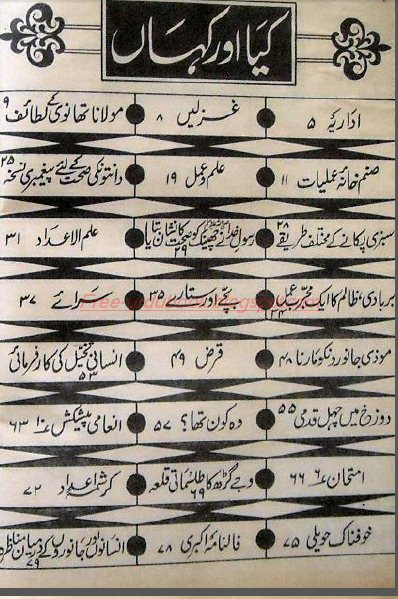 کیا اور کہاں
اداریہ ۵
غزلیں ۸
مولانا تھانوی کے لطائف ۹
صنم خانۂ عملیات ۱۱
علم و عمل ۱۹
دانتوں کی صحت کے لئے پیغمبری نسخہ ۲۵
سبزی پکانے کے مختلف طریقے ۲۸
رسولِ خدا نے چھینک کو صحت کا نشان بتایا ۲۹
علم الاعداد ۳۱
بربادی ظالم کا ایک مجرب عمل ۳۴
بچّے دستار ۳۵
سرائے ۳۷
موذی جانوروں کو مارنا ۴۸
قرض ۴۹
انسانی تخیل کی کارفرمائی ۵۳
دوزخ میں چہل قدمی ۵۵
وہ کون تھا؟ ۵۷
انعامی پیشکش ۶۳
امتحان ۶۶
وجے گڑھ کا طلسماتی قلعہ ۶۹
کرشمۂ اعداد ۷۲
خوفناک حویلی ۷۵
فالنامۂ اکبری ۷۸
انسانوں اور جانوروں کے درمیان مناظرہ ۷۹